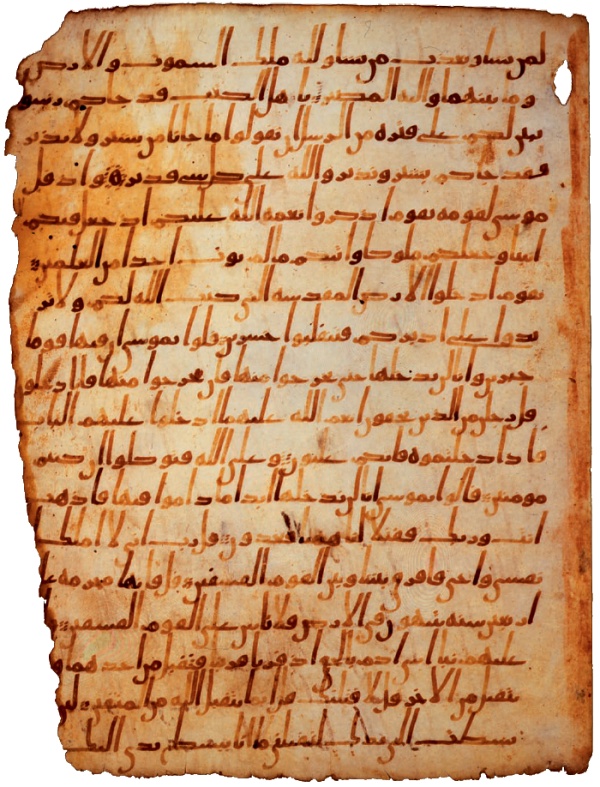 لمن يشا ويعذب من يشا ولله ملك السموت والارض
وما بينهما واليه المصير ياهل الكتب قد جاكم رسو
يبين لكم على فتره من الرسل ان تقولوا ما جانا من بشير ولا نذير
فقد جاكم بشير ونذير والله على كل شي قدير واذ قل
موسى لقومه يقوم اذكروا نعمه الله عليكم اذ جعل فيكم
انبيا وجعلكم ملوكا واتيكم ما لم يوت احدا من العلمين
يقوم ادخلوا الارض المقدسه التي كتب الله لكم ولا تر
تدوا على ادبركم فتنقلبوا خسرين قلوا يموسى ان فيها قوما
جبرين وانا لن ندخلها حتى يخرجوا منها فان يخرجوا منها فانا دخلو
قل رجلن من الذين يخفون انعم الله عليهما ادخلوا عليهم الباب
فاذا دخلتموه فانكم غلبون وعلى الله فتوكلوا ان كنتم
مومنين قالوا يموسى انا لن ندخلها ابدا ما داموا فيها فاذهب
انت وربك فقتلا انا ههنا قعدون قل رب اني لا املك
نفسي واخي فافرق بيننا وبين القوم الفسقين قل فانها محرمه علـ
اربعين سنه يتيهون في الارض فلا تاس على القوم الفسقين
عليهم نبا ابني ادم بالحق اذ قربا قربنا فتقبل من احدهما و
يتقبل من الاخر قل لاقتلنك قل انما يتقبل الله من المتقين لين
بسطت الي يدك لتقتلني ما انا ببسط يدي اليك